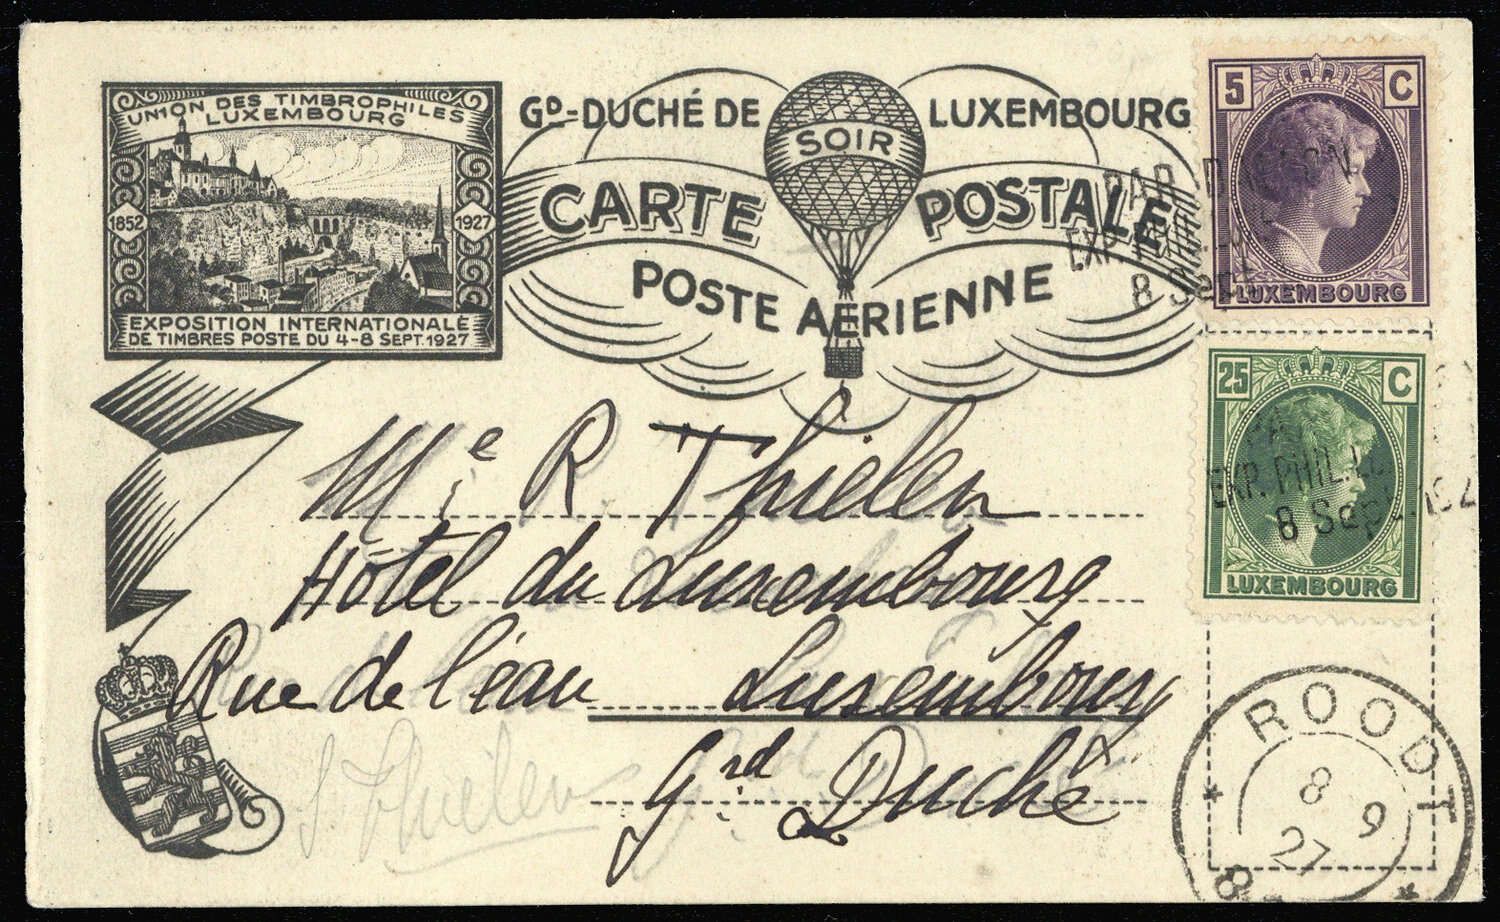 UNION DES TIMBROPHILES
LUXEMBOURG
1852
1927
EXPOSITION INTERNATIONALE
DE TIMBRES POSTE DU 4-8 SEPT. 1927
GD-DUCHÉ DE LUXEMBOURG
SOIR
CARTE POSTALE
POSTE AERIENNE
5 C
LUXEMBOURG
PAR BALLON
EXP. PHIL.
8 Sept
25 C
LUXEMBOURG
EXP. PHIL. LU
8 Sept. 192
Me R Thielen
Hôtel du Luxembourg
Rue de l'éau Luxembourg
Grd Duché
Thielen
ROODT
8
9
27
8